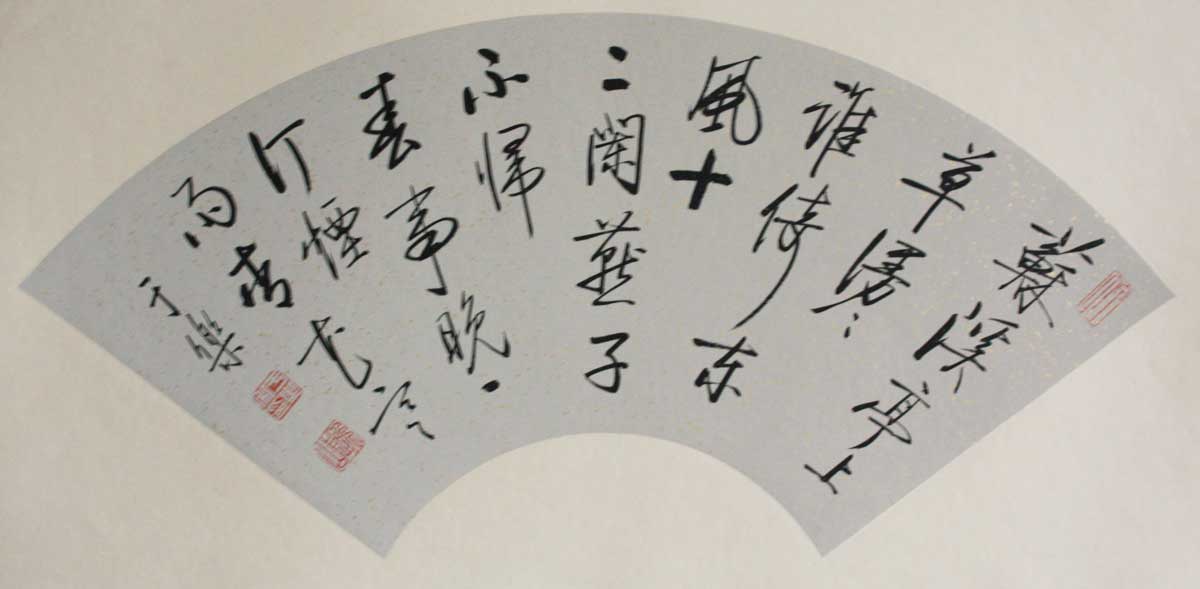 蘇溪亭上
草漫〻
誰倚东
風十
二闌燕子
不歸
春事晚一
汀煙
雨杏花寒
于樂